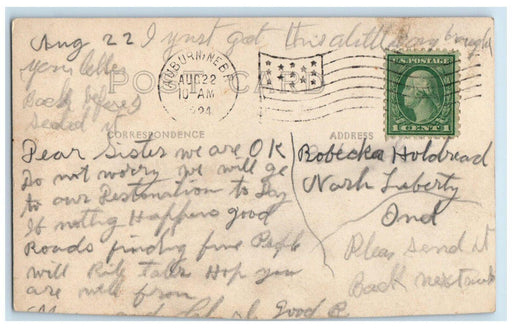 Aug 22 I just got this a little
your letter
Back before
sealed it
POST CARD
AUBURN NEBR.
AUG 22
10 AM
1924
U.S. POSTAGE
1 CENT 1
CORRESPONDENCE
ADDRESS
Dear Sister we are OK
Do not worry we will ge
to our Restonation to Day
If nothing Happens good
Roads finding fine Peple
will talk Hop you
are well from
good B
Robecka Holdread
North Liberty
Ind
Pleas send it
Back next